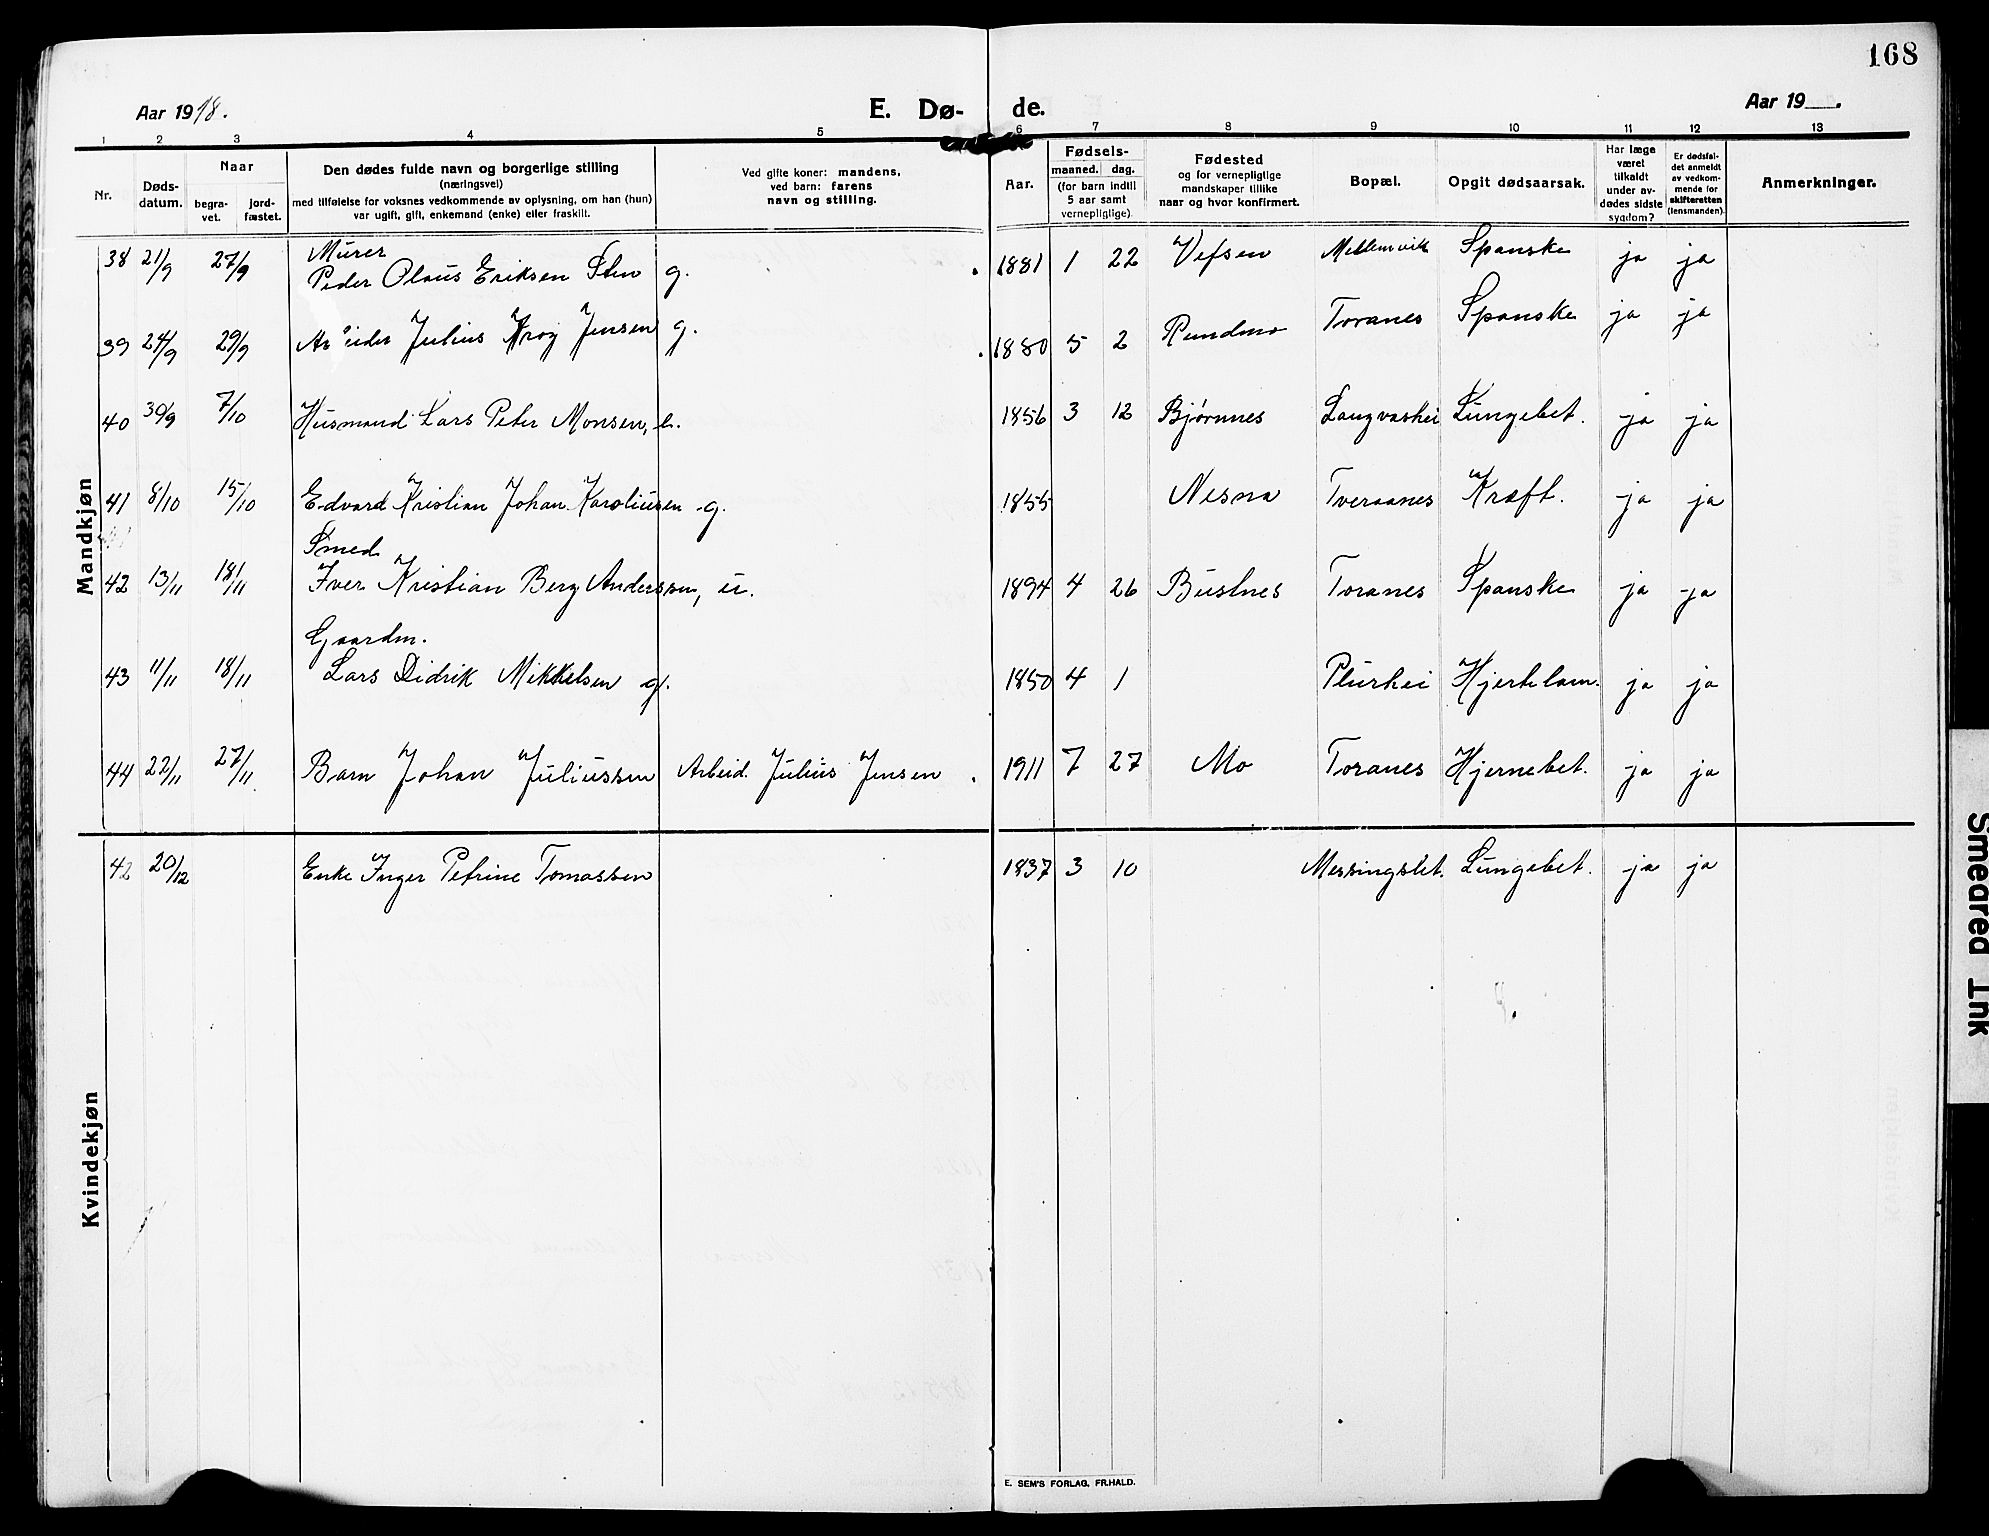 168
Aar 1918. E. Dø- de. Aar 19___.
1 2 3 4 5 6 7 8 9 10 11 12 13
Nr.
Døds-
datum.
Naar
begra-
vet.
jord-
fæstet.
Den dødes fulde navn og borgerlige stilling
(næringsvei)
med tilføielse for voksnes vedkommende av oplysning, om han (hun)
var ugift, gift, enkemand (enke) eller fraskilt.
Ved gifte koner: mandens,
ved barn: farens
navn og stilling.
Aar.
Fødsels-
maaned. dag.
(for barn indtil
5 aar samt
vernepligtige)
Fødested
og for vernepligtige
mandskaper tillike
naar og hvor konfirmert.
Bopæl.
Opgit dødsaarsak.
Har læge
været
tilkaldt
under av-
dødes sidste
sygdom?
Er dødsfal-
det anmeldt
av vedkom-
mende for
skifteretten
(lensmanden).
Anmerkninger.
Mandkjøn
Murer
38 21/9 27/9 Peder Olaus Eriksen Sten g. 1881 1 22 Vefsen Mellemvik Spanske ja ja
39 24/9 29/9 Julius Krog Jensen g. 1880 5 2 Rundmo Toranes Spanske ja ja
40 30/9 7/10 Husmand Lars Peter Monsen, e. 1856 3 12 Bjørnnes Langvashei Lungebet. ja ja
41 8/10 15/10 Edvard Kristian Johan Karoliusen g. 1855 Nesna Tveraanes Kræft. ja ja
Smed
42 13/11 18/11 Iver Kristian Berg Anderssen, u. 1894 4 26 Bustnes Toranes Spanske ja ja
Gaardm.
43 11/11 18/11 Lars Didrik Mikkelsen g. 1850 4 1 Plurhei Hjertelam. ja ja
44 22/11 27/11 Barn Johan Juliussen Arbeid. Julius Jensen 1911 7 27 Mo Toranes Hjernebet. ja ja
Kvindekjøn
42 20/12 Enke Inger Petrine Tomassen 1837 3 10 Messingslet. Lungebet. ja ja
E. SEM'S FORLAG, FR.HALD.
Smeared Ink